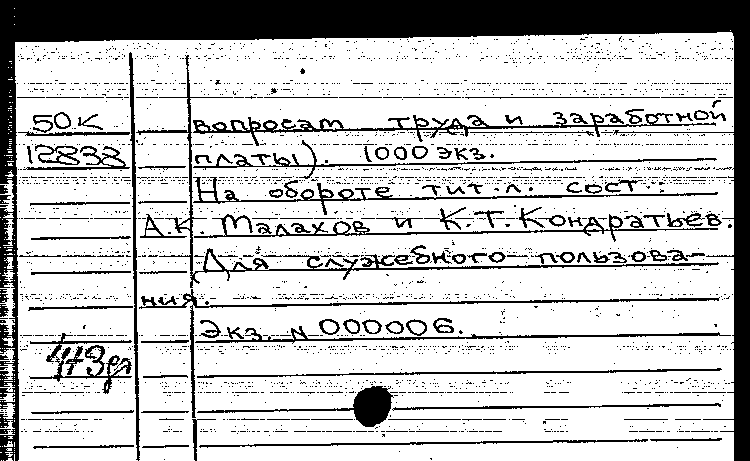 50К вопросам труда и заработной
12838 платы). 1000 экз.
На обороте тит. л. сост.:
А.К. Малахов и К.Т. Кондратьев.
Для служебного пользова-
ния.
Экз. N 000006.